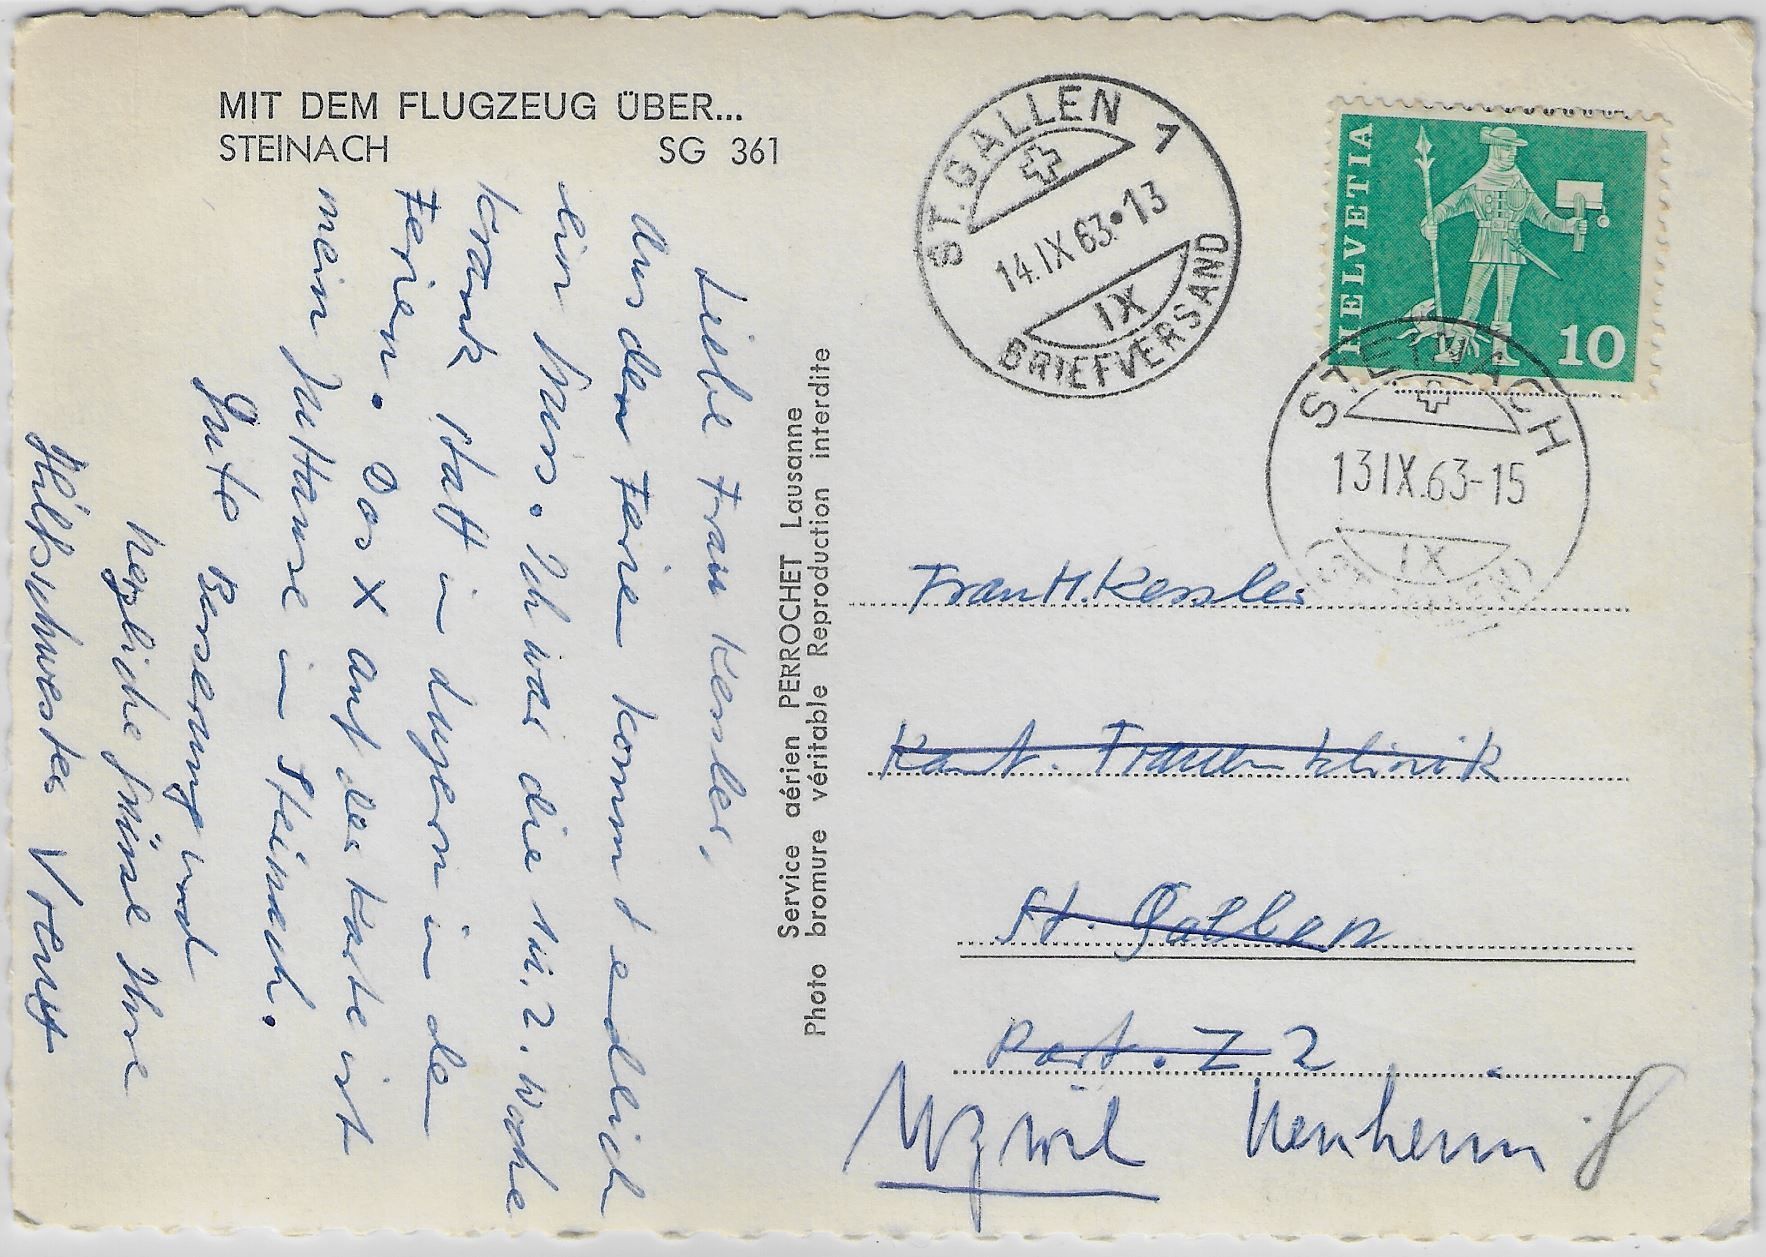 MIT DEM FLUGZEUG ÜBER...
STEINACH SG 361
Liebe Frau Kessler,
Aus den Ferien kommt endlich
ein Gruss. Ich war die 1. u. 2. Woche
krank statt in Luzern in den
Ferien. Das X auf der Karte ist
mein zu Hause in Steinach.
Gute Besserung und
herzliche Grüsse Ihre
Hilfsschwester
Service aérien PERROCHET Lausanne
Photo bromure véritable Reproduction interdite
ST. GALLEN 1
14.IX 63•13
IX
BRIEFVERSAND
HELVETIA
10
STEINACH
13IX.63-15
IX
Frau H. Kessler
Kant. Frauenklinik
St. Gallen
Part. Z 2
Uzwil